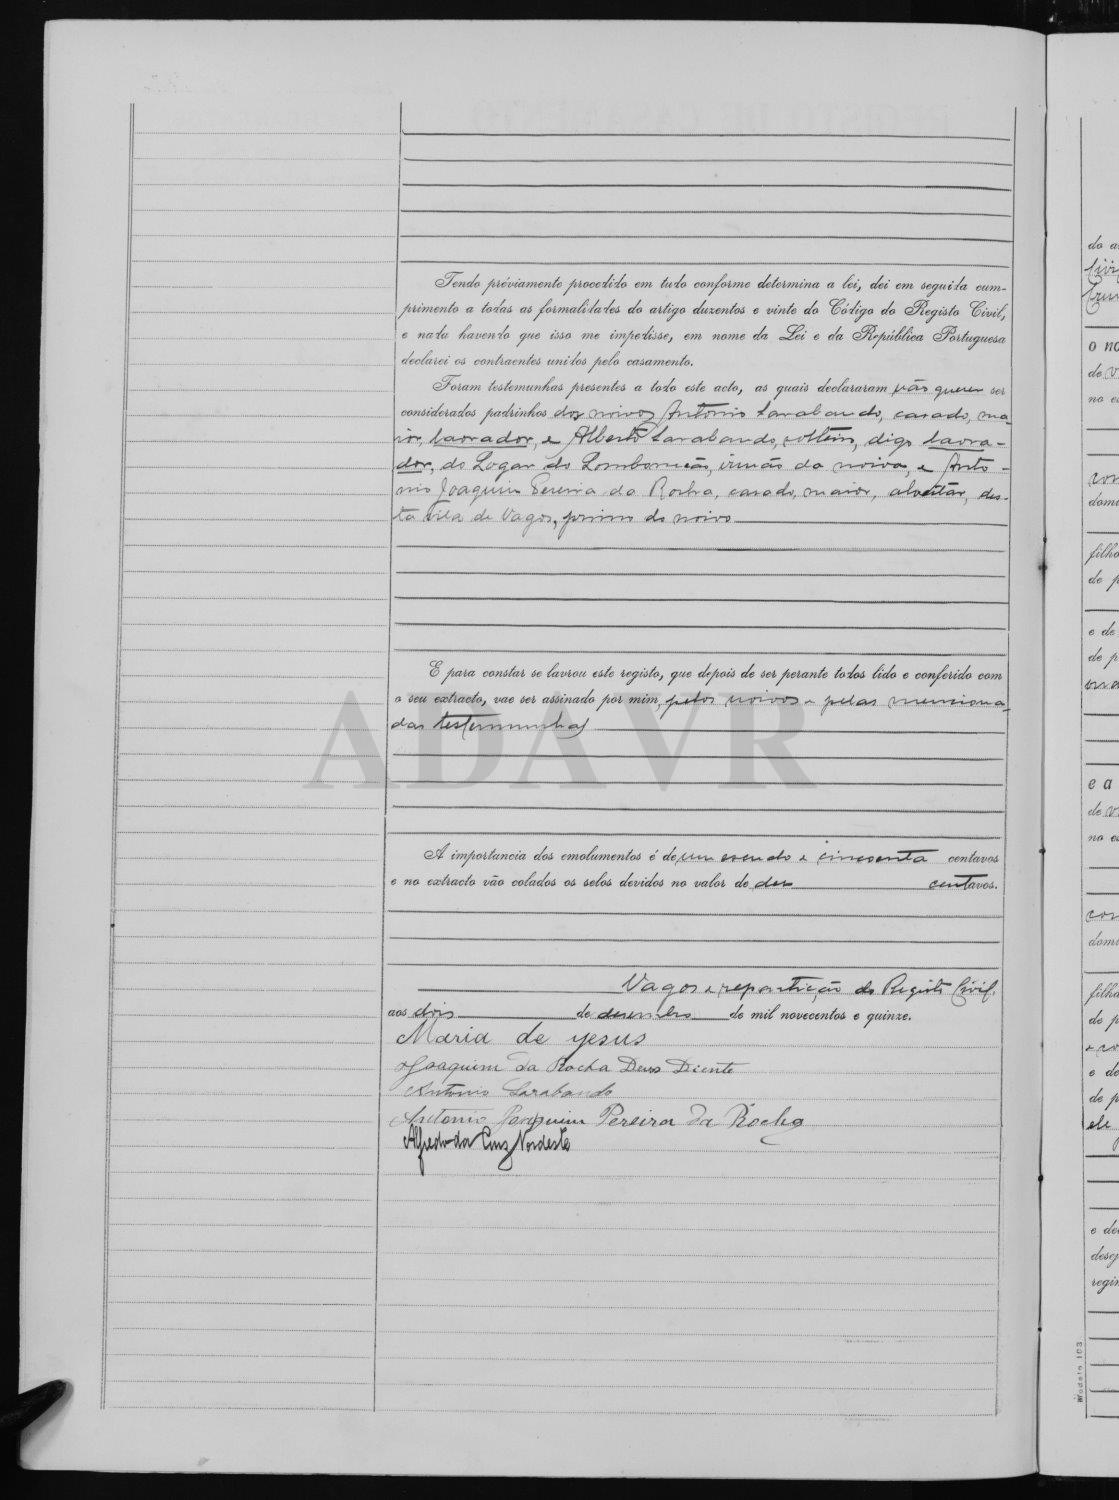 Tendo préviamente procedido em tudo conforme determina a lei, dei em seguida cum-
primento a todas as formalidades do artigo duzentos e vinte do Código do Registo Civil,
e nada havendo que isso me impedisse, em nome da Lei e da República Portuguesa
declarei os contraentes unidos pelo casamento.
Foram testemunhas presentes a todo este acto, as quais declararam não querer ser
considerados padrinhos dos noivos Antonio Sarabando, casado, ma-
ior, lavrador, e Alberto Sarabando, solteiro, digo lavra-
dor, do Logar do Lombomeão, irmão da noiva, e Anto-
nio Joaquim Pereira da Rocha, casado, maior, alveitar, des-
ta Vila de Vagos, primo do noivo
E para constar se lavrou este registo, que depois de ser perante todos lido e conferido com
o seu extracto, vae ser assinado por mim, pelos noivos e pelas menciona-
das testemunhas
ADAVR
A importancia dos emolumentos é de um escudo e cincoenta centavos
e no extracto vão colados os selos devidos no valor de dez centavos.
Vagos e repartição do Registo Civil,
aos dois de desembro de mil novecentos e quinze.
Maria de yesus
Joaquim da Rocha Deus Diente
Antonio Sarabando
Antonio Joaquim Pereira da Rocha
Alfredo da Cruz Nordeste
do a
Civi
o no
de v
no e
domi
filho
de p
e de
de p
e a
de v
no e
domi
filho
de p
e de
de p
ele
e de
desej
regi
Modelo 103